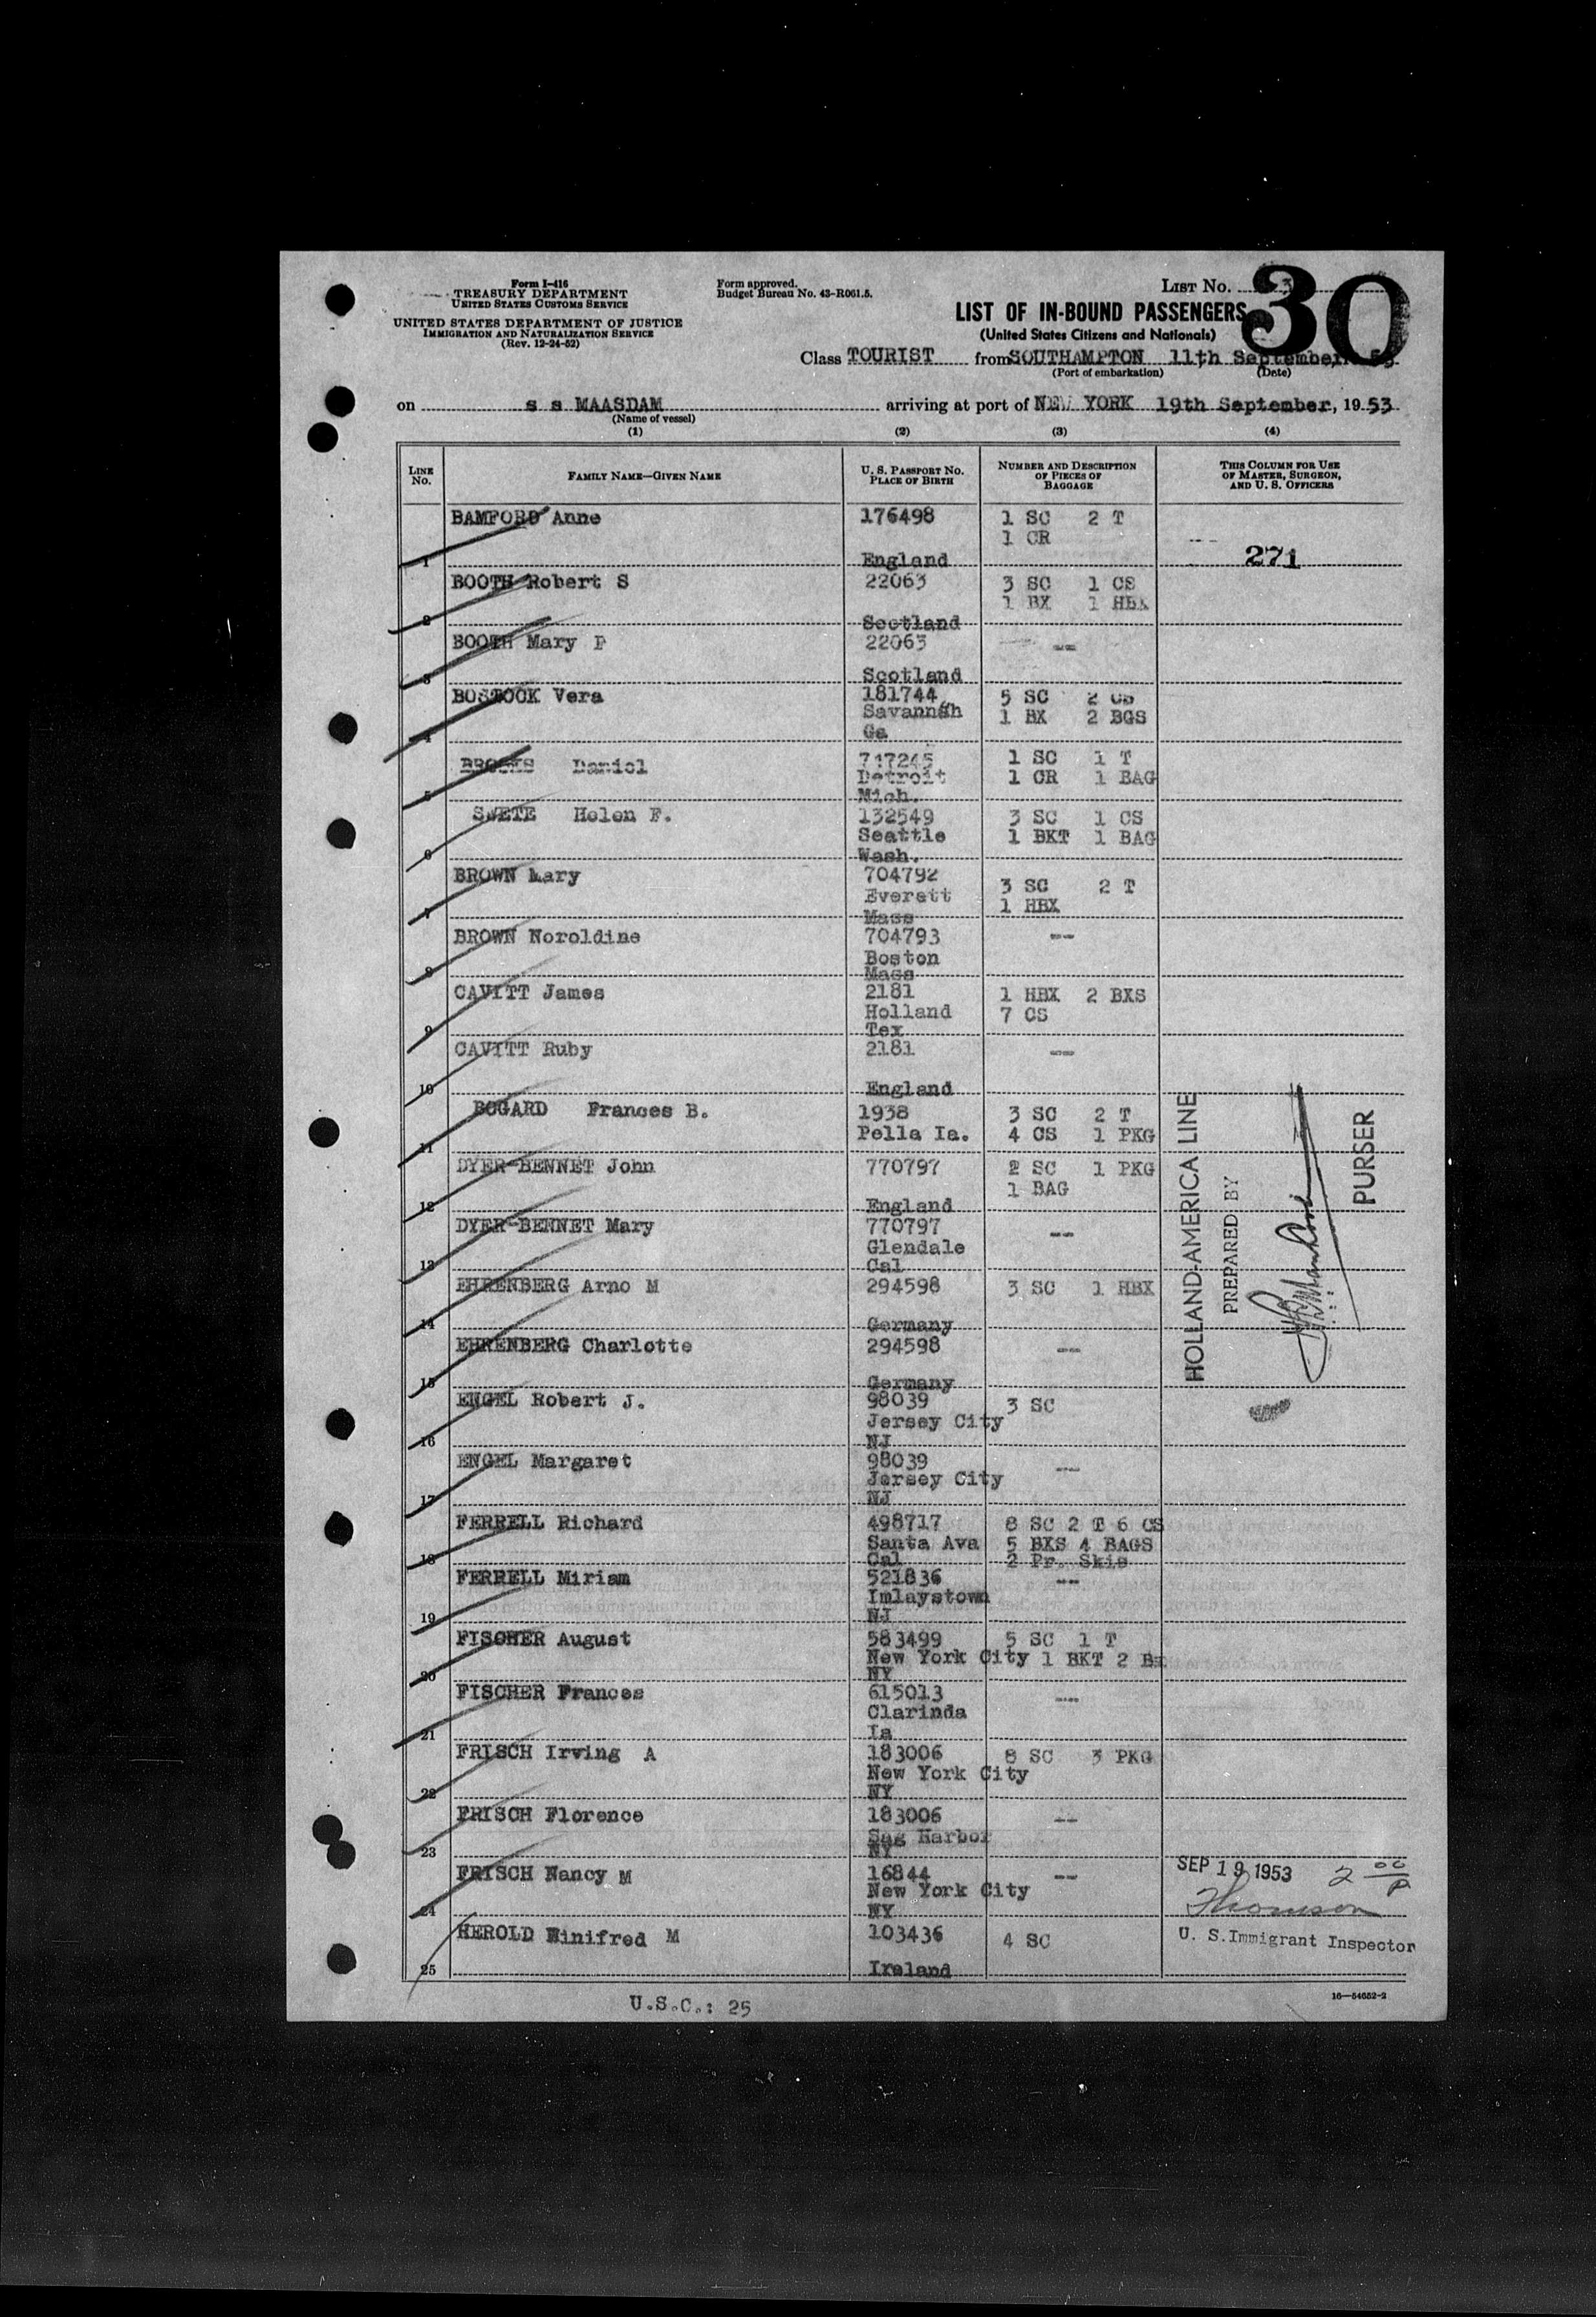 Form I-416
TREASURY DEPARTMENT
UNITED STATES CUSTOMS SERVICE
UNITED STATES DEPARTMENT OF JUSTICE
IMMIGRATION AND NATURALIZATION SERVICE
(Rev. 12-24-52)
Form approved.
Budget Bureau No. 43-R061.5.
LIST No.
30
LIST OF IN-BOUND PASSENGERS
(United States Citizens and Nationals)
Class TOURIST from SOUTHAMPTON 11th September, 53
(Port of embarkation) (Date)
on s s MAASDAM arriving at port of NEW YORK 19th September, 1953
(Name of vessel)
(1) (2) (3) (4)
LINE No. FAMILY NAME—GIVEN NAME U. S. PASSPORT No. PLACE OF BIRTH NUMBER AND DESCRIPTION OF PIECES OF BAGGAGE THIS COLUMN FOR USE OF MASTER, SURGEON, AND U. S. OFFICERS
BAMFORD Anne 176498 1 SC 2 T
1 CR
1 England 271
BOOTH Robert S 22063 3 SC 1 CS
1 BX 1 HBX
2 Scotland
BOOTH Mary 22063 --
3 Scotland
BOSTOCK Vera 181744 5 SC 2 CS
Savannah 1 BX 2 BGS
4 Ga
BROOKS Daniel 747245 1 SC 1 T
Detroit 1 CR 1 BAG
5 Mich.
SWETE Helen F. 132549 3 SC 1 CS
Seattle 1 BKT 1 BAG
6 Wash.
BROWN Mary 704792 3 SC 2 T
Everett 1 HBX
7 Mass
BROWN Noroldine 704793 --
Boston
8 Mass
CAVITT James 2181 1 HBX 2 BXS
Holland 7 CS
9 Tex
CAVITT Ruby 2181 --
10 England
BOGARD Frances B. 1938 3 SC 2 T
Pella Ia. 4 CS 1 PKG
11
DYER-BENNET John 770797 2 SC 1 PKG
1 BAG
12 England
DYER-BENNET Mary 770797 --
Glendale
13 Cal
EHRENBERG Arno M 294598 3 SC 1 HBX
14 Germany
EHRENBERG Charlotte 294598 --
15 Germany
ENGEL Robert J. 98039 3 SC
Jersey City
16 NJ
ENGEL Margaret 98039 --
Jersey City
17 NJ
FERRELL Richard 498717 8 SC 2 T 6 CS
Santa Ava 5 BXS 4 BAGS
18 Cal 2 Pr. Skis
FERRELL Miriam 521836 --
Imlaystown
19 NJ
FISCHER August 583499 5 SC 1 T
New York City 1 BKT 2
20 NY
FISCHER Frances 615013 --
Clarinda
21 Ia
FRISCH Irving A 183006 8 SC 3 PKG
New York City
22 NY
FRISCH Florence 183006 --
Sag Harbor
23 NY
FRISCH Nancy M 16844 --
New York City
24 NY
HEROLD Winifred M 103436 4 SC
25 Ireland
HOLLAND-AMERICA LINE
PREPARED BY
PURSER
SEP 19 1953 2 00 P
Thomson
U. S. Immigrant Inspector
U.S.C.: 25
16—54652-2